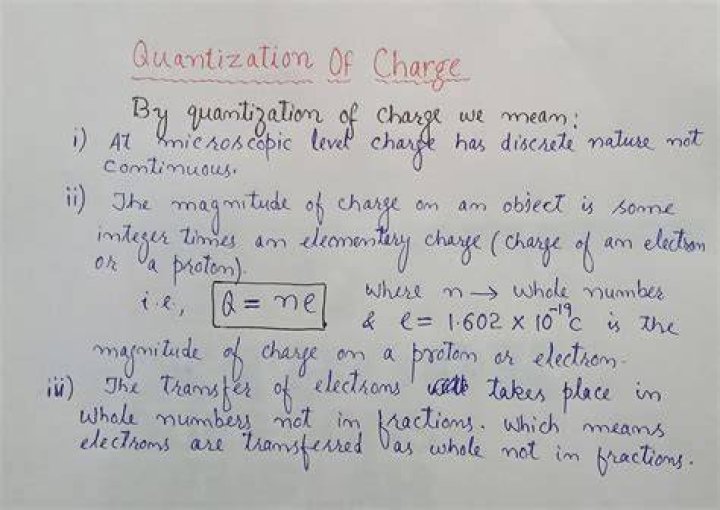 Quantization Of Charge
By quantization of charge we mean:
i) At microscopic level charge has discrete nature not
continuous.
ii) The magnitude of charge on an object is some
integer times an elementary charge (charge of an electron
or a proton).
i.e., Q = ne where n → whole number
& e = 1.602 × 10⁻¹⁹c is the
magnitude of charge on a proton or electron.
iii) The transfer of electrons takes place in
whole numbers not in fractions. which means
electrons are transferred as whole not in fractions.